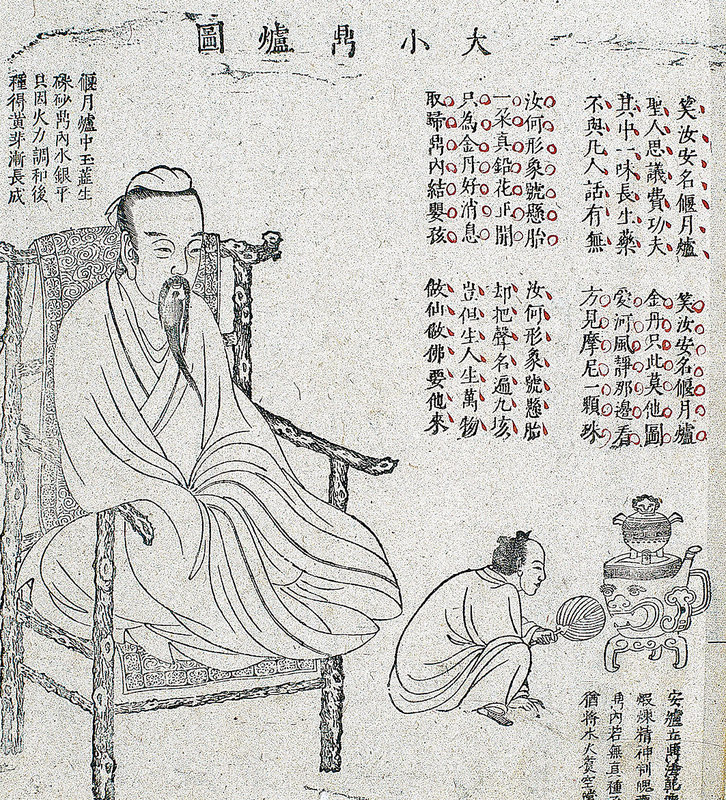 大小鼎爐圖
笑汝安名偃月爐
聖人思議費功夫
其中一味長生藥
不與凡人話有無
汝何形象號懸胎
一朵真鉛花正開
只為金丹好消息
取歸鼎內結嬰孩
笑汝安名偃月爐
金丹只此莫他圖
愛河風靜那邊看
方見摩尼一顆珠
汝何形象號懸胎
却把聲名遍九垓
豈但生人生萬物
做仙做佛要他來
偃月爐中玉蕊生
硃砂鼎內水銀平
只因火力調和後
種得黃芽漸長成
安爐立鼎法乾
煅煉精神制魄
鼎內若無真種
猶將水火煑空